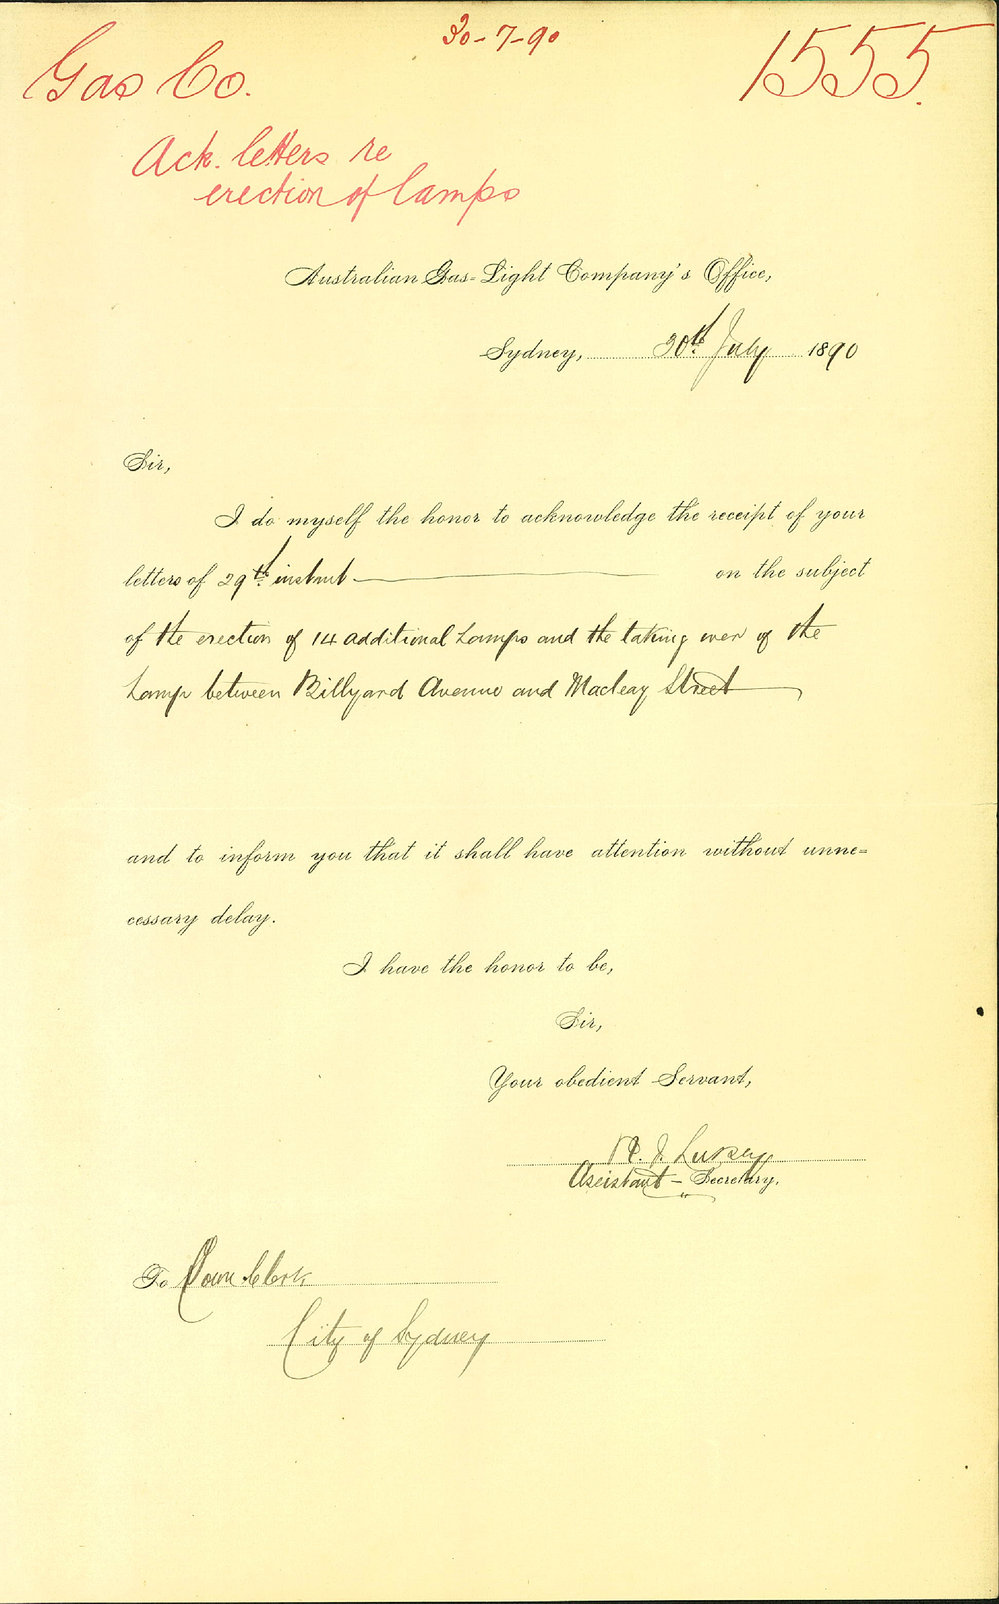 30-7-90
Gas Co.
1555.
Ack. letters re
erection of lamps
Australian Gas-Light Company's Office,
Sydney, 30th July 1890
Sir,
I do myself the honor to acknowledge the receipt of your
letters of 29th instant on the subject
of the erection of 14 additional Lamps and the taking over of the
Lamp between Billyard Avenue and Macleay Street
and to inform you that it shall have attention without unne=
cessary delay.
I have the honor to be,
Sir,
Your obedient Servant,
J.
Assistant - Secretary.
To Town Clerk
City of Sydney